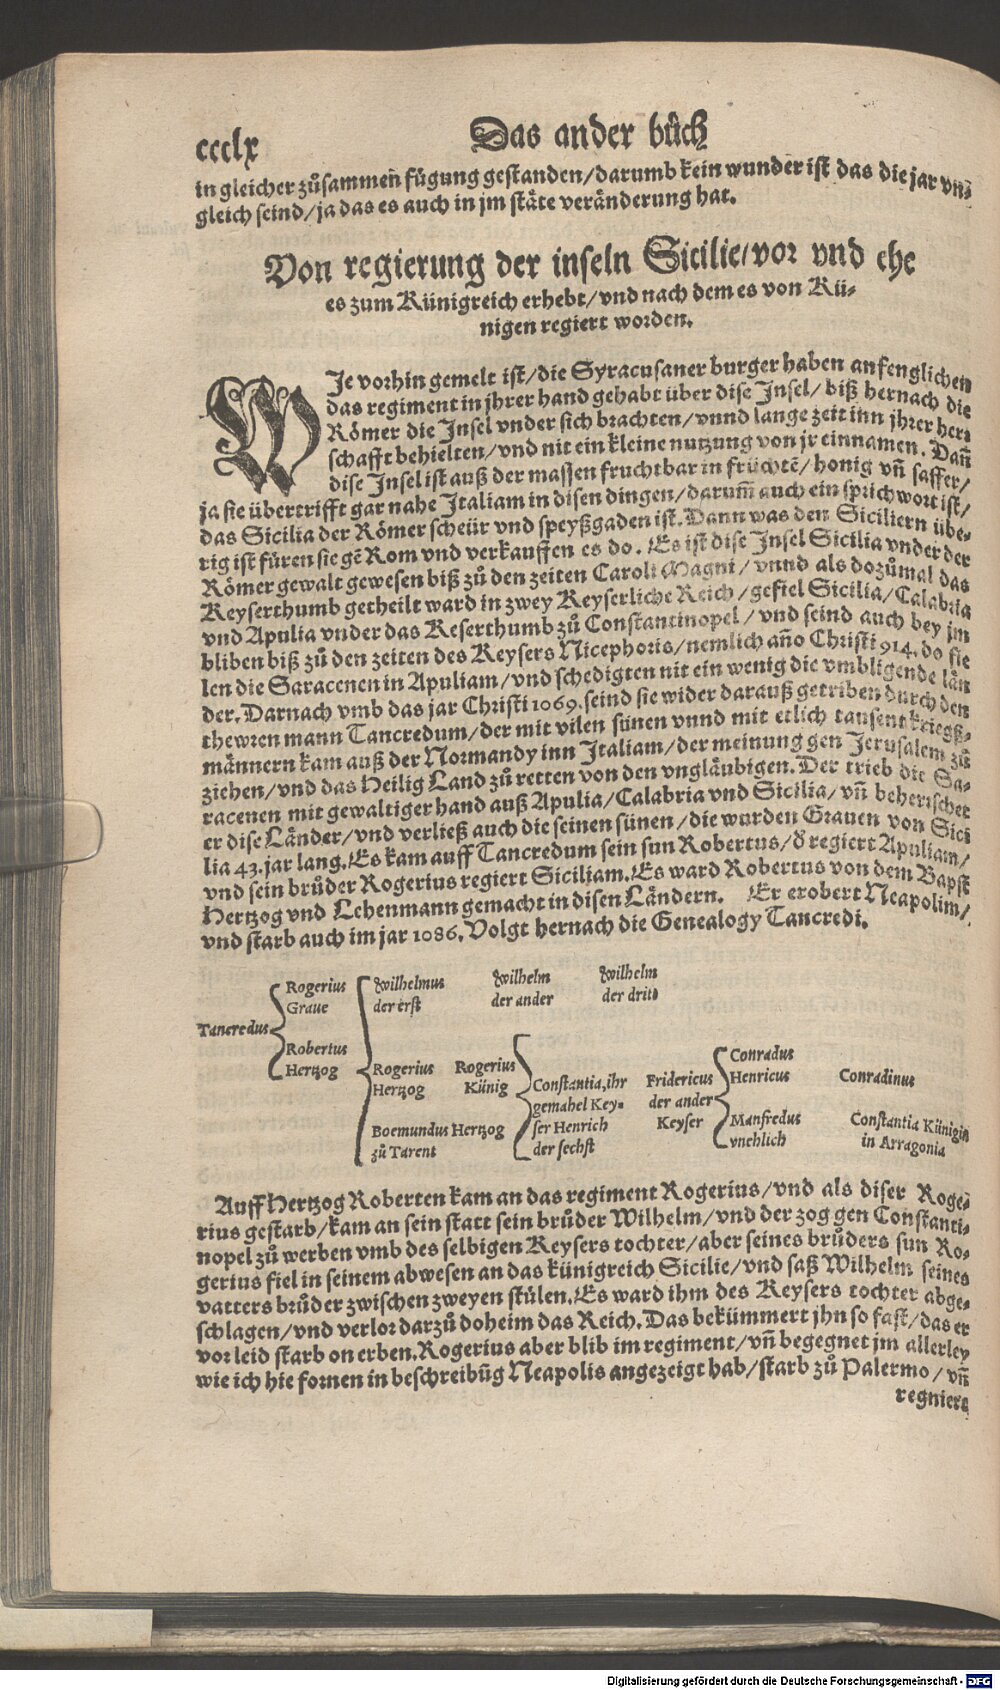 ccclx
Das ander bůch
in gleicher zůsammen fügung gestanden / darumb kein wunder ist das die jar vn⸗
gleich seind / ja das es auch in jm stäte veränderung hat.
Von regierung der inseln Sicilie / vor vnd ehe
es zum Künigreich erhebt / vnd nach dem es von Kü⸗
nigen regiert worden.
WJe vorhin gemelt ist / die Syracusaner burger haben anfenglichen
das regiment in jhrer hand gehabt über dise Jnsel / biß hernach die
Römer die Jnsel vnder sich brachten / vnnd lange zeit inn jhrer her⸗
schafft behielten / vnd nit ein kleine nutzung von jr einnamen. Dañ
dise Jnsel ist auß der massen fruchtbar in früchtẽ / honig vñ saffer /
ja sie übertrifft gar nahe Jtaliam in disen dingen / darum̃ auch ein sprichwort ist /
das Sicilia der Römer scheür vnd speyßgaden ist. Dann was den Siciliern übe⸗
rig ist fůren sie gẽ Rom vnd verkauffen es do. Es ist dise Jnsel Sicilia vnder der
Römer gewalt gewesen biß zů den zeiten Caroli Magni / vnnd als dozůmal das
Keyserthumb getheilt ward in zwey Keyserliche Reich / gefiel Sicilia / Calabria
vnd Apulia vnder das Keserthumb zů Constantinopel / vnd seind auch bey jm
bliben biß zů den zeiten des Keysers Nicephoris / nemlich año Christi 914. do fie
len die Saracenen in Apuliam / vnd schedigten nit ein wenig die vmbligende län
der. Darnach vmb das jar Christi 1069. seind sie wider darauß getriben durch den
thewren mann Tancredum / der mit vilen sünen vnnd mit etlich tausent kriegß⸗
männern kam auß der Normandy inn Jtaliam / der meinung gen Jerusalem zů
ziehen / vnd das Heilig Land zů retten von den vngläubigen. Der trieb die Sa⸗
racenen mit gewaltiger hand auß Apulia / Calabria vnd Sicilia / vñ beherischet
er dise Länder / vnd verließ auch die seinen sünen / die wurden Grauen von Sici
lia 43. jar lang. Es kam auff Tancredum sein sun Robertus / d̕ regiert Apuliam /
vnd sein brůder Rogerius regiert Siciliam. Es ward Robertus von dem Bapst
Hertzog vnd Lehenmann gemacht in disen Ländern. Er erobert Neapolim /
vnd starb auch im jar 1086. Volgt hernach die Genealogy Tancredi.
Tancredus
Rogerius
Graue
Robertus
Hertzog
Wilhelmus
der erst
Rogerius
Hertzog
Boemundus Hertzog
zů Tarent
Wilhelm
der ander
Wilhelm
der drit
Rogerius
Künig
Constantia, ihr
gemahel Key⸗
ser Henrich
der sechst
Fridericus
der ander
Keyser
Conradus
Henricus
Manfredus
vnehlich
Conradinus
Constantia Künigin
in Arragonia
Auff Hertzog Roberten kam an das regiment Rogerius / vnd als diser Roge⸗
rius gestarb / kam an sein statt sein brůder Wilhelm / vnd der zog gen Constanti⸗
nopel zů werben vmb des selbigen Keysers tochter / aber seines brůders sun Ro⸗
gerius fiel in seinem abwesen an das künigreich Sicilie / vnd saß Wilhelm seines
vatters brůder zwischen zweyen stülen. Es ward ihm des Keysers tochter abge⸗
schlagen / vnd verlor darzů doheim das Reich. Das bekümmert jhn so fast / das er
vor leid starb on erben. Rogerius aber blib im regiment / vñ begegnet jm allerley
wie ich hie fornen in beschreibũg Neapolis angezeigt hab / starb zů Palermo / vñ
regniert
Digitalisierung gefördert durch die Deutsche Forschungsgemeinschaft - DFG